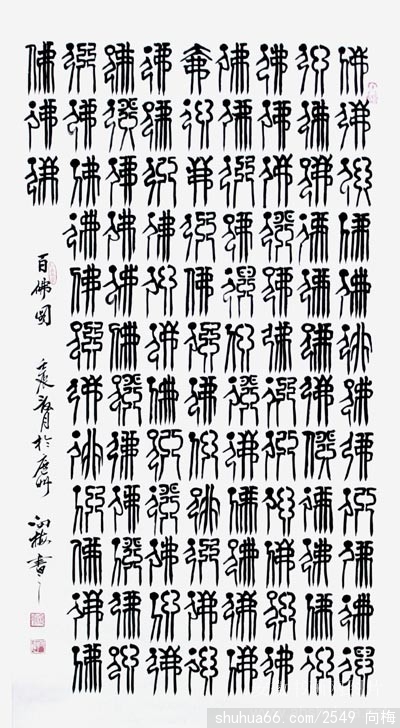 佛佛佛佛佛佛佛佛佛佛佛佛
佛佛佛佛佛佛佛佛佛佛佛佛
佛佛佛佛佛佛佛佛佛佛佛佛
佛佛佛佛佛佛佛佛佛佛佛佛
佛佛佛佛佛佛佛佛佛佛佛佛
佛佛佛佛佛佛佛佛佛佛佛佛
佛佛佛佛佛佛佛佛佛佛佛佛
佛佛佛佛佛佛佛佛佛佛佛佛
佛佛佛
百佛圖 壬辰月於 向梅書
shuhua66.com/2549 向梅